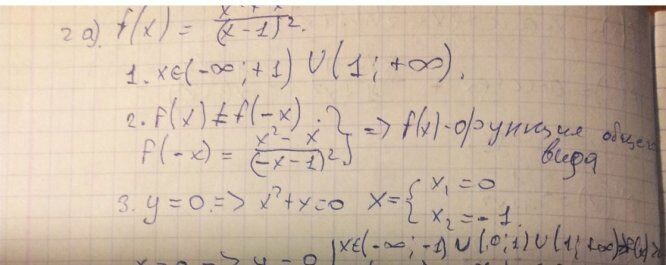 2 a) f(x) = x² + x / (x - 1)².
1. x∈(-∞; +1) ∪ (1; +∞).
2. f(x) ≠ f(-x).
f(-x) = x² - x / (-x - 1)² } => f(x) - функция общего вида
3. y = 0. => x² + x = 0 x = { x₁ = 0
x₂ = -1.
x = 0 => y = 0 | x∈(-∞; -1) ∪ (0; 1) ∪ (1; +∞)